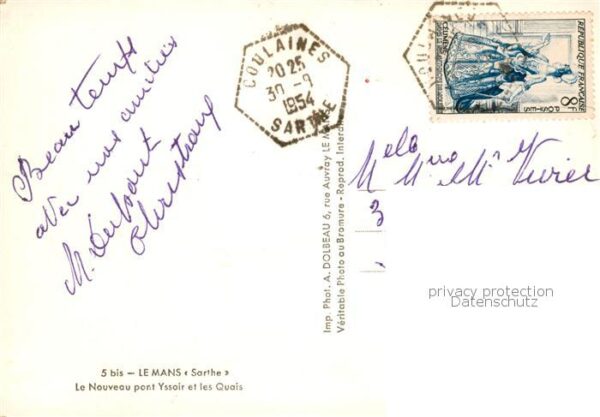 Beau temps
avec nos amitiés
M.
COULAINES
20 25
30 - 9
1954
SARTHE
COULAINES
RÉPUBLIQUE FRANÇAISE
8F
POSTES
CÉLIMÈNE
Imp. Phot. A. DOLBEAU 6, rue Auvray LE M
Véritable Photo au Bromure - Reprod. Interd
Vivier
3
privacy protection
Datenschutz
5 bis — LE MANS « Sarthe »
Le Nouveau pont Yssoir et les Quais